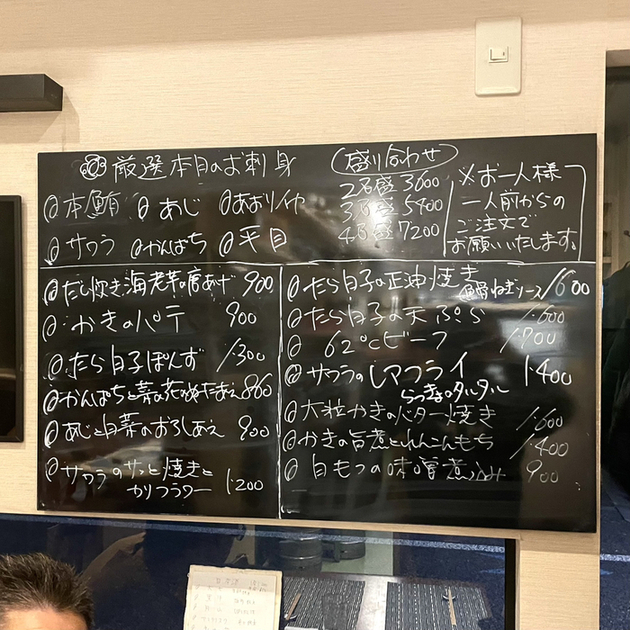 厳選本日のお刺身
本鮪 あじ あおりイカ
サワラ かんぱち 平目
盛り合わせ
2名盛 3600
3名盛 5400
4名盛 7200
※お一人様
一人前からの
ご注文で
お願いいたします。
だし炊き海老芋の唐あげ 900
かきのパテ 900
たら白子ぽんず 1300
かんぱちと菜の花ぬたまえ 860
あじと白菜のおろしあえ 900
サワラのサッと焼きと
カリフラワー 1200
たら白子の正油焼き
ねぎソース 1600
たら白子の天ぷら 1600
62℃ビーフ 1700
サワラのレアフライ
らっきょのタルタル 1400
大粒かきのバター焼き 1600
かきの旨煮とれんこんもち 1400
白もつの味噌煮込み 900